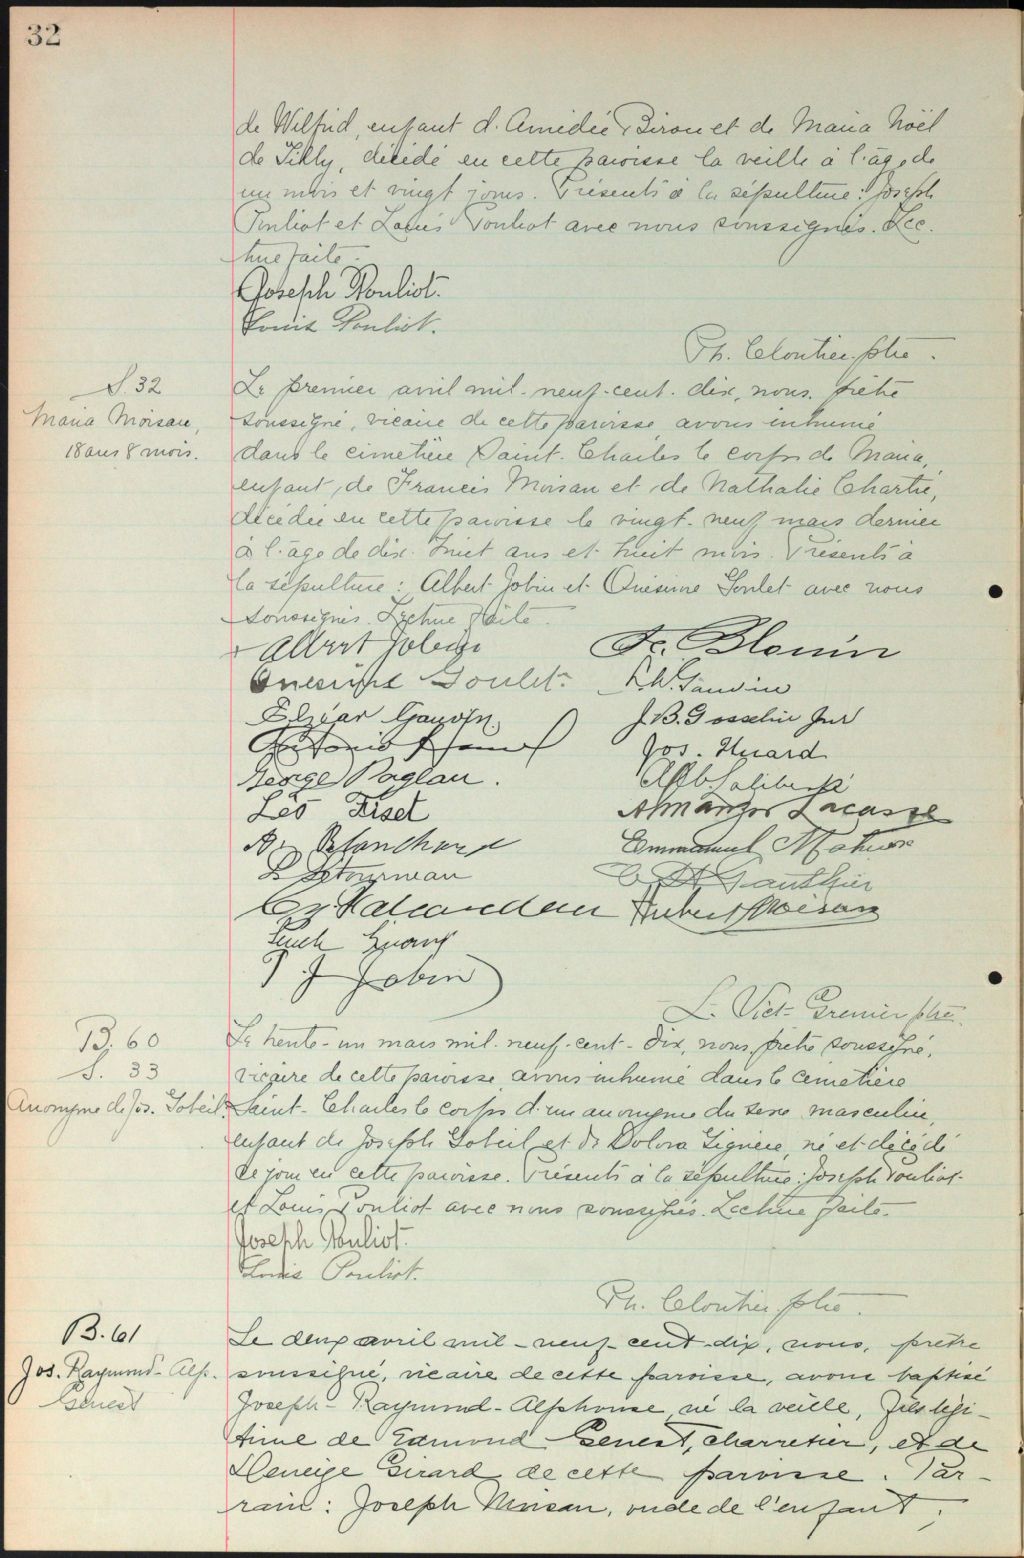 32
de Wilfrid, enfant d'Amédée Biron et de Maria Noël
de Tilly, décédé en cette paroisse la veille à l'âge de
un mois et vingt jours. Présents à la sépulture: Joseph
Pouliot et Louis Pouliot avec nous soussignés. Lec-
ture faite.
Joseph Pouliot.
Louis Pouliot.
Ph. Cloutier ptre.
S. 32
Maria Moisan,
18 ans 8 mois.
Le premier avril mil-neuf-cent-dix, nous, prêtre
soussigné, vicaire de cette paroisse avons inhumé
dans le cimetière Saint-Charles le corps de Maria,
enfant, de Francis Moisan et de Nathalie Chartré,
décédée en cette paroisse le vingt-neuf mars dernier
à l'âge de dix-huit ans et huit mois. Présents à
la sépulture: Albert Jobin et Onésime Goulet avec nous
soussignés. Lecture faite.
Albert Jobin Blouin
Onesime Goulet Gauvin
Elzéar Gauvin J.B. Gosselin Jnr
Antonio Jos. Huard
George Paglau.
Léo Fiset Almanzor Lacasse
Blanchard Emmanuel
Letourneau Gauthier
Hubert Moisan
Jobin
L. Vict. Grenier ptre.
B. 60
S. 33
Anonyme de Jos. Gobeil
Le trente-un mars mil-neuf-cent-dix, nous, prêtre soussigné,
vicaire de cette paroisse, avons inhumé dans le cimetière
Saint-Charles le corps d'un anonyme du sexe masculin,
enfant de Joseph Gobeil et de Dolora Gignère, né et décédé
ce jour en cette paroisse. Présents à la sépulture: Joseph Pouliot
et Louis Pouliot avec nous soussignés. Lecture faite.
Joseph Pouliot.
Louis Pouliot.
Ph. Cloutier ptre.
B. 61
Jos. Raymond-Alp.
Genest
Le deux avril mil-neuf-cent-dix, nous, prêtre
soussigné, vicaire de cette paroisse, avons baptisé
Joseph-Raymond-Alphonse, né la veille, fils légi-
time de Edmond Genest, charretier, et de
Deneige Girard de cette paroisse. Par-
rain: Joseph Moisan, oncle de l'enfant,